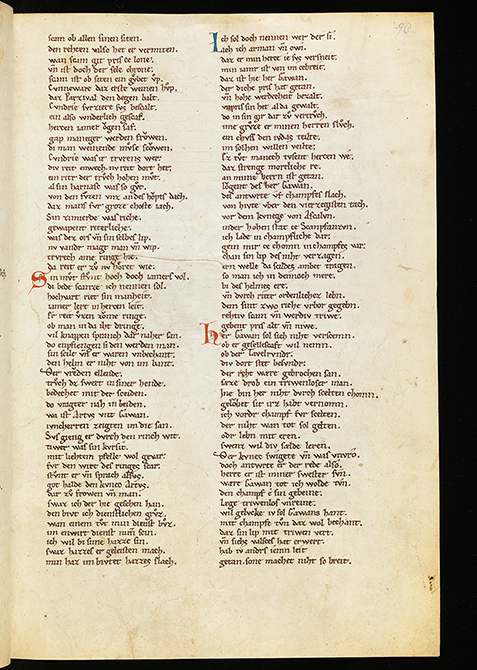 scam ob allen sinen siten.
den rehten valsc het er vermiten.
wan scam git pris ze lone.
vn̄ ist doch der sele chrone.
scam ist ob siten ein gvͦbet vͦp.
Cvnneware daz erste weinen hvͦp.
daz Parzival den degen balt.
Cvndrie svrziere svs beschalt.
ein also wnderlich gescaf.
herzen iamer ovgen saf.
gap maneger werden frowen.
di man weinende mvse scowen.
Cvndrie was ir trvrens wer.
div reit enwech nv reit dort her.
ein riter der trvͦch hohen mvͦt.
al sin harnasc was so gvͦt.
von den fvzen vnz an des hoͮpts dach.
daz mans fvr groze choste iach.
Sin zimierde was riche.
gewapent riterliche.
was dez ors vn̄ sin selbes lip.
nv vander magt man vn̄ wip.
trvrech ame ringe hie.
da reit er zv nv hoͤret wie.
Sin mvͦt stvͦnt hoch doch iamers vol.
di bede scanze ich nennen sol.
hochvart riet sin manheit.
iamer lert in herzen leit.
er reit vzen zome ringe.
ob man in da iht dringe.
vil knappen spranch dar naher san.
do enpfiengen si den werden man.
sin scilt vn̄ er waren vnbechant.
den helm er niht von im bant.
Der vreuden ellende.
trvͦch dz swert in siner hende.
bedechet mit der sceiden.
do vragter nah in beiden.
wa ist Artvs vnt Gawan.
ivncherren zeigten im die san.
Svs gieng er dvrch den rinch wit.
tiwer was sin kvrsit.
mit liehtem pfelle wol gevar.
fvr den wirt des ringes scar.
stvͦnt er vn̄ sprach alsvs.
got halde den kvnec Artvs.
dar zv frowen vn̄ man.
swaz ich der hie gesehen han.
den bivt ich dienstlichen grvͦz.
wan einem tvͦt min dienst bvͦz.
im enwirt dienst nimer scin.
ich wil bi sime hazze sin.
swaz hazzes er geleisten mach.
min haz im bivtet hazzes slach.
Ich sol doch nennen wer der si.
ach ich arman vn̄ owi.
daz er min herze ie svs versneit.
min iamer ist von im zebreit.
daz ist hie her Gawan.
der diche pris hat getan.
vn̄ hohe werdecheit bezalt.
vnpris sin het al da gewalt.
do in sin gir dar zv vertrvͦch.
ime grvͦze er minen herren slvͦch.
ein chvs den ivdas teilte.
im solhen willen veilte.
Ez tvͦt manech tvsent herzen we.
daz strenge mortliche re.
an mime herrn ist getan.
lovgent des her Gawan.
des antwrte vf champfes slach.
von hivte vber den vierzegisten tach.
vor dem kvnege von Ascalvn.
inder hohen stat ze Scanpfanzvn.
ich lade in champfliche dar.
gein mir ze chomn inchampfes var.
chan sin lip des niht verzagen.
ern welle da scildes ambet tragen.
so man ich in dennoch mere.
bi des helmes ere.
vn̄ dvrch riter ordenlichez lebn.
dem sint zwo riche vrbor gegebn.
rehtiv scam vn̄ werdiv triwe.
gebent pris alt vn̄ niwe.
Her Gawan sol sich niht verscemn.
ob er geselleschaft wil nemn.
ob der Tavelrvnder.
div dort stet besvnder.
der reht ware gebrochen san.
saeze drob ein triwenloser man.
Ine bin her niht dvrch scelten chomn.
gelovbet sit irz habt vernomn.
ich vorder champf fvr scelten.
der niht wan tot sol gelten.
oder lebn mit eren.
swenz wil div saelde leren.
Der kvnec sweigte vn̄ was vnvro.
doch antwrte er der rede also.
herre er ist miner swester svn.
ware Gawan tot ich wolde tvn.
den champf e sin gebeine.
laege triwenlos vnreine.
wil gelvcke iv sol Gawans hant.
mit champfe tvn daz wol bechant.
daz sin lip mit triwen vert.
vn̄ sichs valsces hat erwert.
hab iv anders iemn leit
getan. sone machet niht so breit.